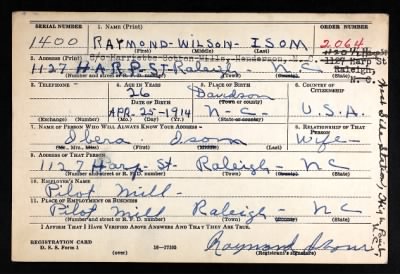 SERIAL NUMBER 1. NAME (Print) ORDER NUMBER
1400 RAYMOND-WILSON-ISOM 2064
(First) (Middle) (Last)
2. ADDRESS (Print)
1127 HARP St-Raleigh-N-C 1127 Harp St
Raleigh,
N. C.
(Number and street or R. F. D. number) (Town) (County) (State)
3. TELEPHONE 4. AGE IN YEARS 5. PLACE OF BIRTH 6. COUNTRY OF CITIZENSHIP
26 Davidson
DATE OF BIRTH (Town or county)
APR-25-1914 N-C- U.S.A.
(Exchange) (Number) (Mo.) (Day) (Yr.) (State or country)
7. NAME OF PERSON WHO WILL ALWAYS KNOW YOUR ADDRESS 8. RELATIONSHIP OF THAT PERSON
Isom Wife-
(Mr., Mrs., Miss) (First) (Middle) (Last)
9. ADDRESS OF THAT PERSON
1127 Harp-St- Raleigh-NC
(Number and street or R. F. D. number) (Town) (County) (State)
10. EMPLOYER'S NAME
Pilot Mill-
11. PLACE OF EMPLOYMENT OR BUSINESS
Pilot Mill Raleigh-NC
(Number and street or R. F. D. number) (Town) (County) (State)
I AFFIRM THAT I HAVE VERIFIED ABOVE ANSWERS AND THAT THEY ARE TRUE.
REGISTRATION CARD
D. S. S. Form 1 (over) 16-17105 Raymond Isom
(Registrant's signature)